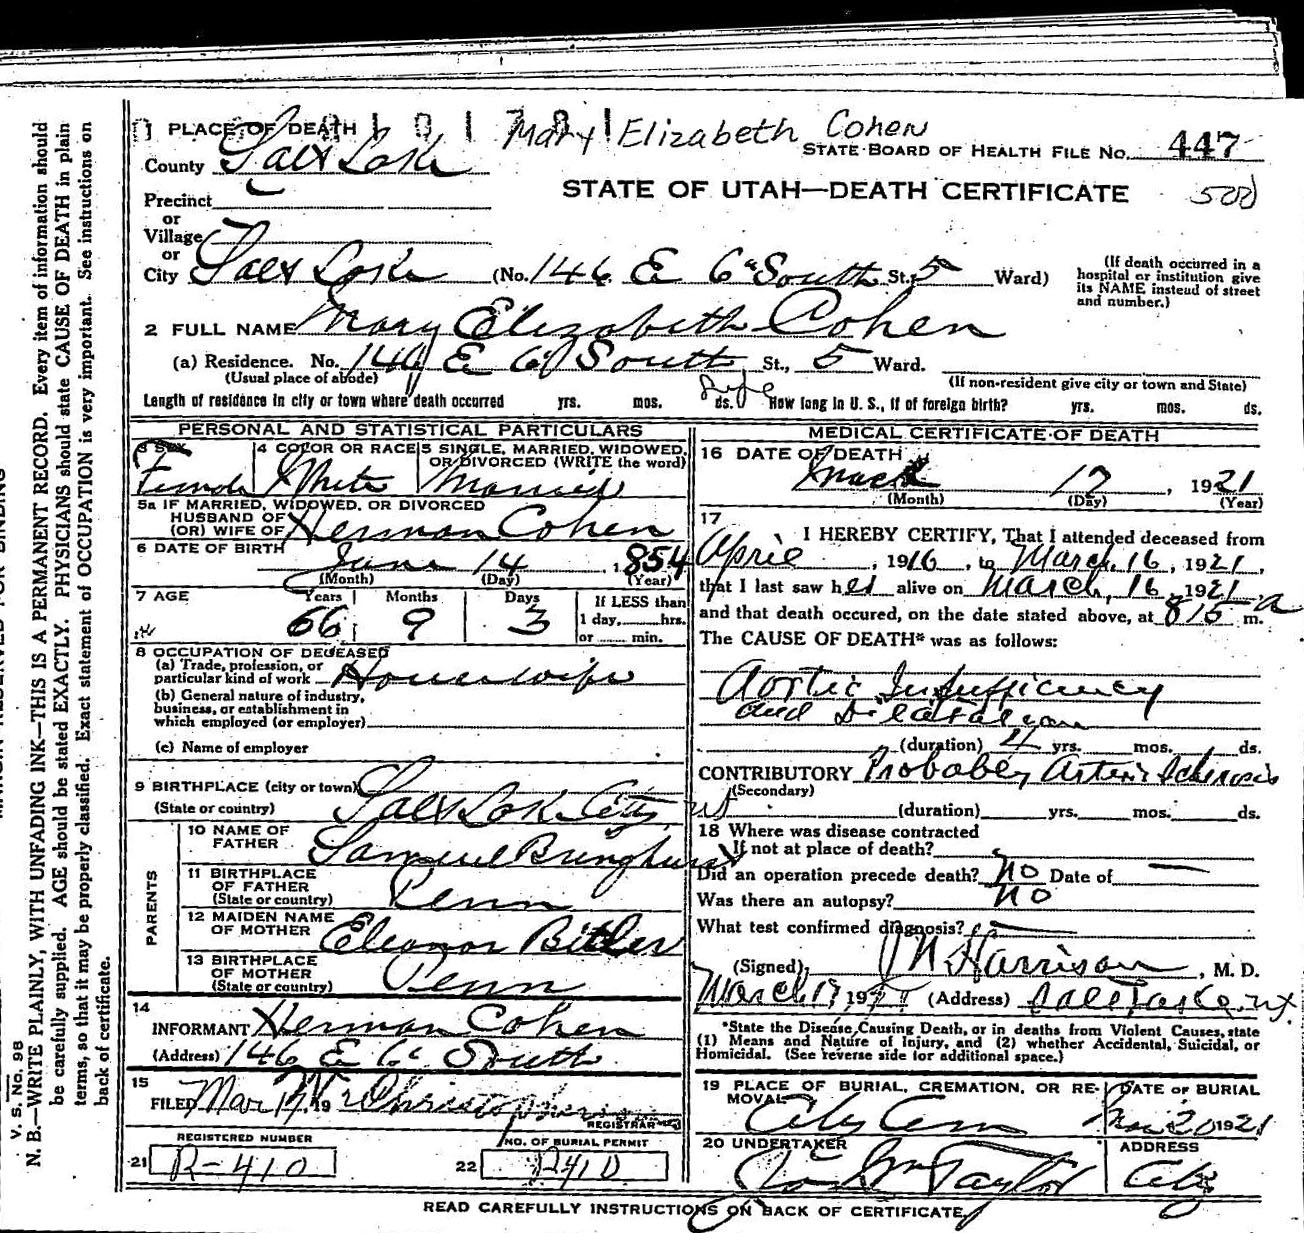 1 PLACE OF DEATH
Mary Elizabeth Cohen
STATE BOARD OF HEALTH FILE No. 447
County Salt Lake
STATE OF UTAH—DEATH CERTIFICATE 500
Precinct
or
Village
or
City Salt Lake (No. 146 E 6th South St. 5 Ward)
(If death occurred in a hospital or institution give its NAME instead of street and number.)
2 FULL NAME Mary Elizabeth Cohen
(a) Residence. No. 146 E 6th South St., 5 Ward.
(Usual place of abode) (If non-resident give city or town and State)
Length of residence in city or town where death occurred yrs. mos. ds. Life How long in U. S., if of foreign birth? yrs. mos. ds.
PERSONAL AND STATISTICAL PARTICULARS
3 SEX Female
4 COLOR OR RACE White
5 SINGLE, MARRIED, WIDOWED, OR DIVORCED (WRITE the word) Married
5a IF MARRIED, WIDOWED, OR DIVORCED
HUSBAND OF
(OR) WIFE OF Herman Cohen
6 DATE OF BIRTH June 14, 1854
(Month) (Day) (Year)
7 AGE Years 66 Months 9 Days 3
If LESS than 1 day, hrs. or min.
8 OCCUPATION OF DECEASED
(a) Trade, profession, or particular kind of work Housewife
(b) General nature of industry, business, or establishment in which employed (or employer)
(c) Name of employer
9 BIRTHPLACE (city or town) Salt Lake City Ut
(State or country)
PARENTS
10 NAME OF FATHER Samuel Bringhurst
11 BIRTHPLACE OF FATHER (State or country) Penn
12 MAIDEN NAME OF MOTHER Eleanor Bitler
13 BIRTHPLACE OF MOTHER (State or country) Penn
14
INFORMANT Herman Cohen
(Address) 146 E 6th South
15
FILED Mar 17, 19
REGISTRAR
REGISTERED NUMBER
21 R-410
NO. OF BURIAL PERMIT
22 R410
MEDICAL CERTIFICATE OF DEATH
16 DATE OF DEATH March 17, 1921
(Month) (Day) (Year)
17
I HEREBY CERTIFY, That I attended deceased from
April, 1916, to March, 16, 1921,
that I last saw her alive on March, 16, 1921
and that death occured, on the date stated above, at 815 a m.
The CAUSE OF DEATH* was as follows:
Aortic Insufficiency
and Dilatation
(duration) 4 yrs. mos. ds.
CONTRIBUTORY Probably Arterio Sclerosis
(Secondary)
(duration) yrs. mos. ds.
18 Where was disease contracted
If not at place of death?
Did an operation precede death? No Date of —
Was there an autopsy? No
What test confirmed diagnosis?
(Signed) Harrison, M. D.
March 17 19 (Address) Salt Lake, Ut.
*State the Disease Causing Death, or in deaths from Violent Causes, state
(1) Means and Nature of Injury, and (2) whether Accidental, Suicidal, or
Homicidal. (See reverse side for additional space.)
19 PLACE OF BURIAL, CREMATION, OR REMOVAL City Cem
DATE OF BURIAL Mar 20 1921
20 UNDERTAKER Taylor
ADDRESS City
READ CAREFULLY INSTRUCTIONS ON BACK OF CERTIFICATE.
V. S. No. 98
N. B.—WRITE PLAINLY, WITH UNFADING INK—THIS IS A PERMANENT RECORD. Every item of information should
be carefully supplied. AGE should be stated EXACTLY. PHYSICIANS should state CAUSE OF DEATH in plain
terms, so that it may be properly classified. Exact statement of OCCUPATION is very important. See instructions on
back of certificate.